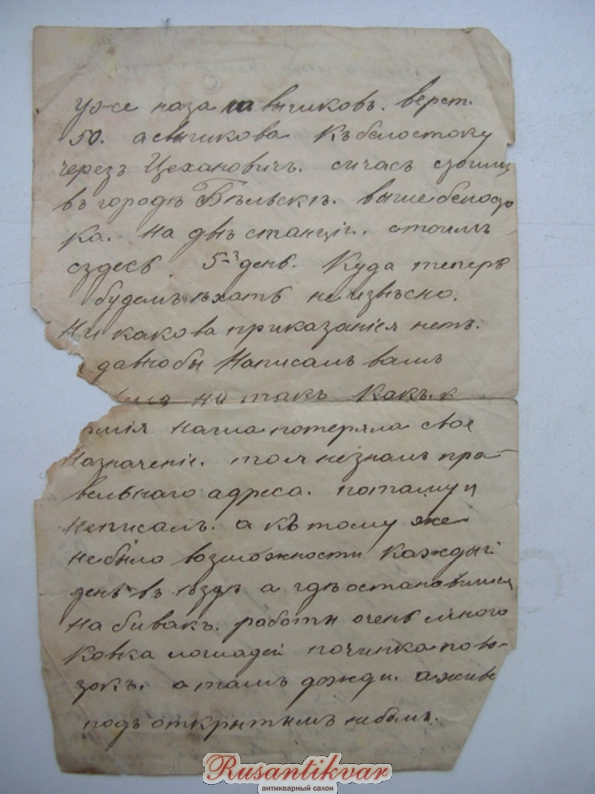 уже наза на вышковъ. верст.
50. а свышкова къ белостоку
черезъ Цехановичъ. сичасъ стоимъ
въ городѣ Бѣльскѣ. выше белосто
ка. на двѣ станціи. стоимъ
сздесь 5-й день. Куда теперь
будемъ ѣхать неизвѣсно.
Ни какова приказанія нетъ.
давно бы написалъ вамъ
но такъ какъ
наша потеряла свое
назначеніе. то я незналъ пра
вельнаго адреса. потаму и
неписалъ. а къ тому же
небыло возможности каждый
день въ ѣздѣ а гдѣ остановимся
на бивакъ. работы очень много
ковка лошадей починка пово-
зокъ. а тамъ дожди. а живе
подъ открытымъ небомъ.
Rusantikvar
антикварный салон